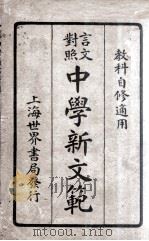 教科自修適用
言文
對照
中學新文範
上海世界書局發行
www.mtoou.info